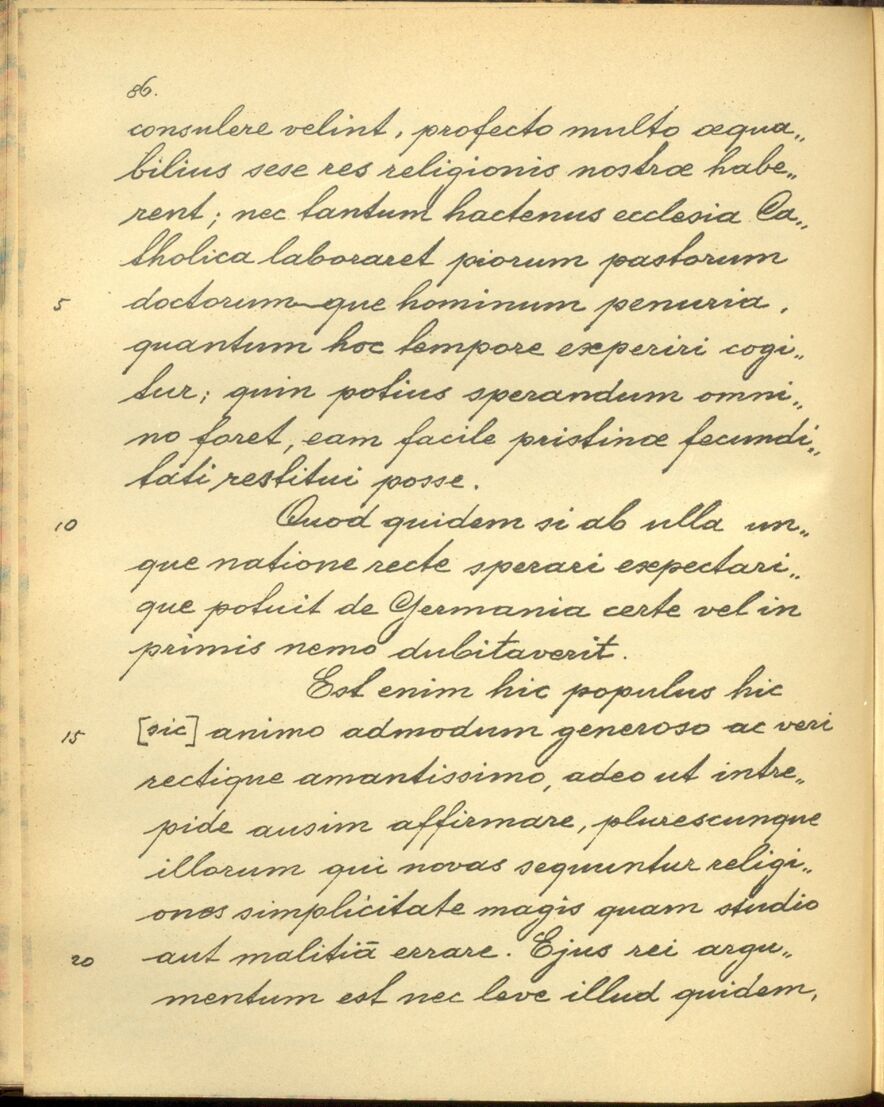 86.
consulere velint, profecto multo æqua„
bilius sese res religionis nostræ habe„
rent; nec tantum hactenus ecclesia Ca„
tholica laboraret piorum pastorum
5 doctorum-que hominum penuria,
quantum hoc tempore experiri cogi„
tur; quin potius sperandum omni„
no foret, eam facile pristinæ fecundi„
tati restitui posse.
10 Quod quidem si ab ulla un„
que natione recte sperari expectari„
que potuit de Germania certe vel in
primis nemo dubitaverit.
Est enim hic populus hic
15 [sic] animo admodum generoso ac veri
rectique amantissimo, adeo ut intre„
pide ausim affirmare, plurescunque
illorum qui novas sequuntur religi„
ones simplicitate magis quam studio
20 aut malitiā errare. Ejus rei argu„
mentum est nec leve illud quidem,